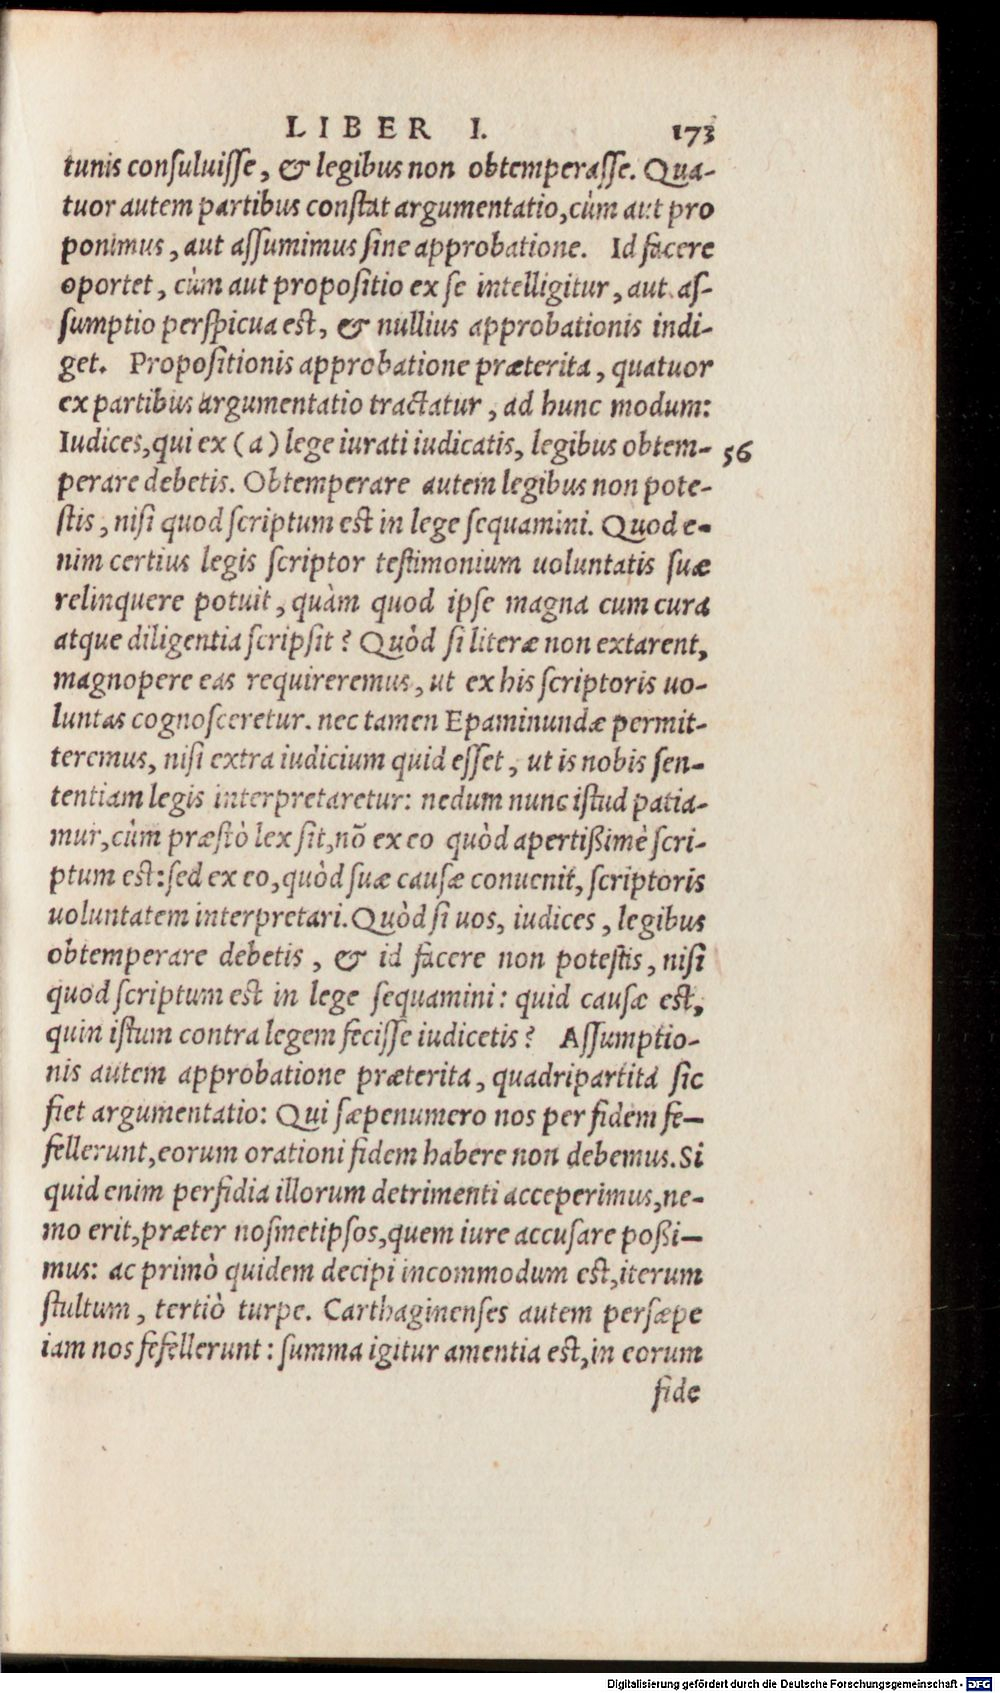 LIBER I. 173
tunis consuluisse, & legibus non obtemperasse. Qua-
tuor autem partibus constat argumentatio, cùm aut pro
ponimus, aut assumimus sine approbatione. Id facere
oportet, cùm aut propositio ex se intelligitur, aut as-
sumptio perspicua est, & nullius approbationis indi-
get. Propositionis approbatione præterita, quatuor
ex partibus argumentatio tractatur, ad hunc modum:
Iudices, qui ex (a) lege iurati iudicatis, legibus obtem- 56
perare debetis. Obtemperare autem legibus non pote-
stis, nisi quod scriptum est in lege sequamini. Quod e-
nim certius legis scriptor testimonium uoluntatis suæ
relinquere potuit, quàm quod ipse magna cum cura
atque diligentia scripsit? Quòd si literæ non extarent,
magnopere eas requireremus, ut ex his scriptoris uo-
luntas cognosceretur. nec tamen Epaminundæ permit-
teremus, nisi extra iudicium quid esset, ut is nobis sen-
tentiam legis interpretaretur: nedum nunc istud patia-
mur, cùm præstò lex sit, nõ ex eo quòd apertißimè scri-
ptum est: sed ex eo, quòd suæ causæ conuenit, scriptoris
uoluntatem interpretari. Quòd si uos, iudices, legibus
obtemperare debetis, & id facere non potestis, nisi
quod scriptum est in lege sequamini: quid causæ est,
quin istum contra legem fecisse iudicetis? Assumptio-
nis autem approbatione præterita, quadripartita sic
fiet argumentatio: Qui sæpenumero nos per fidem fe-
fellerunt, eorum orationi fidem habere non debemus. Si
quid enim perfidia illorum detrimenti acceperimus, ne-
mo erit, præter nosmetipsos, quem iure accusare poßi-
mus: ac primò quidem decipi incommodum est, iterum
stultum, tertiò turpe. Carthaginenses autem persæpe
iam nos fefellerunt: summa igitur amentia est, in eorum
fide
Digitalisierung gefördert durch die Deutsche Forschungsgemeinschaft - DFG